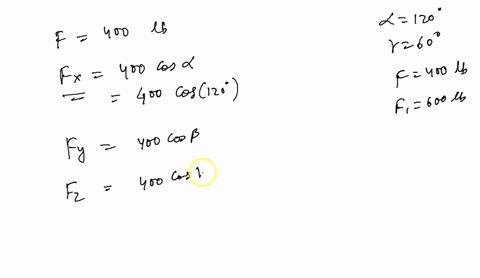 F = 400 lb
Fx = 400 cos α
= 400 cos(120°)
Fy = 400 cos β
Fz = 400 cos
α = 120°
γ = 60°
F = 400 lb
F₁ = 600 lb